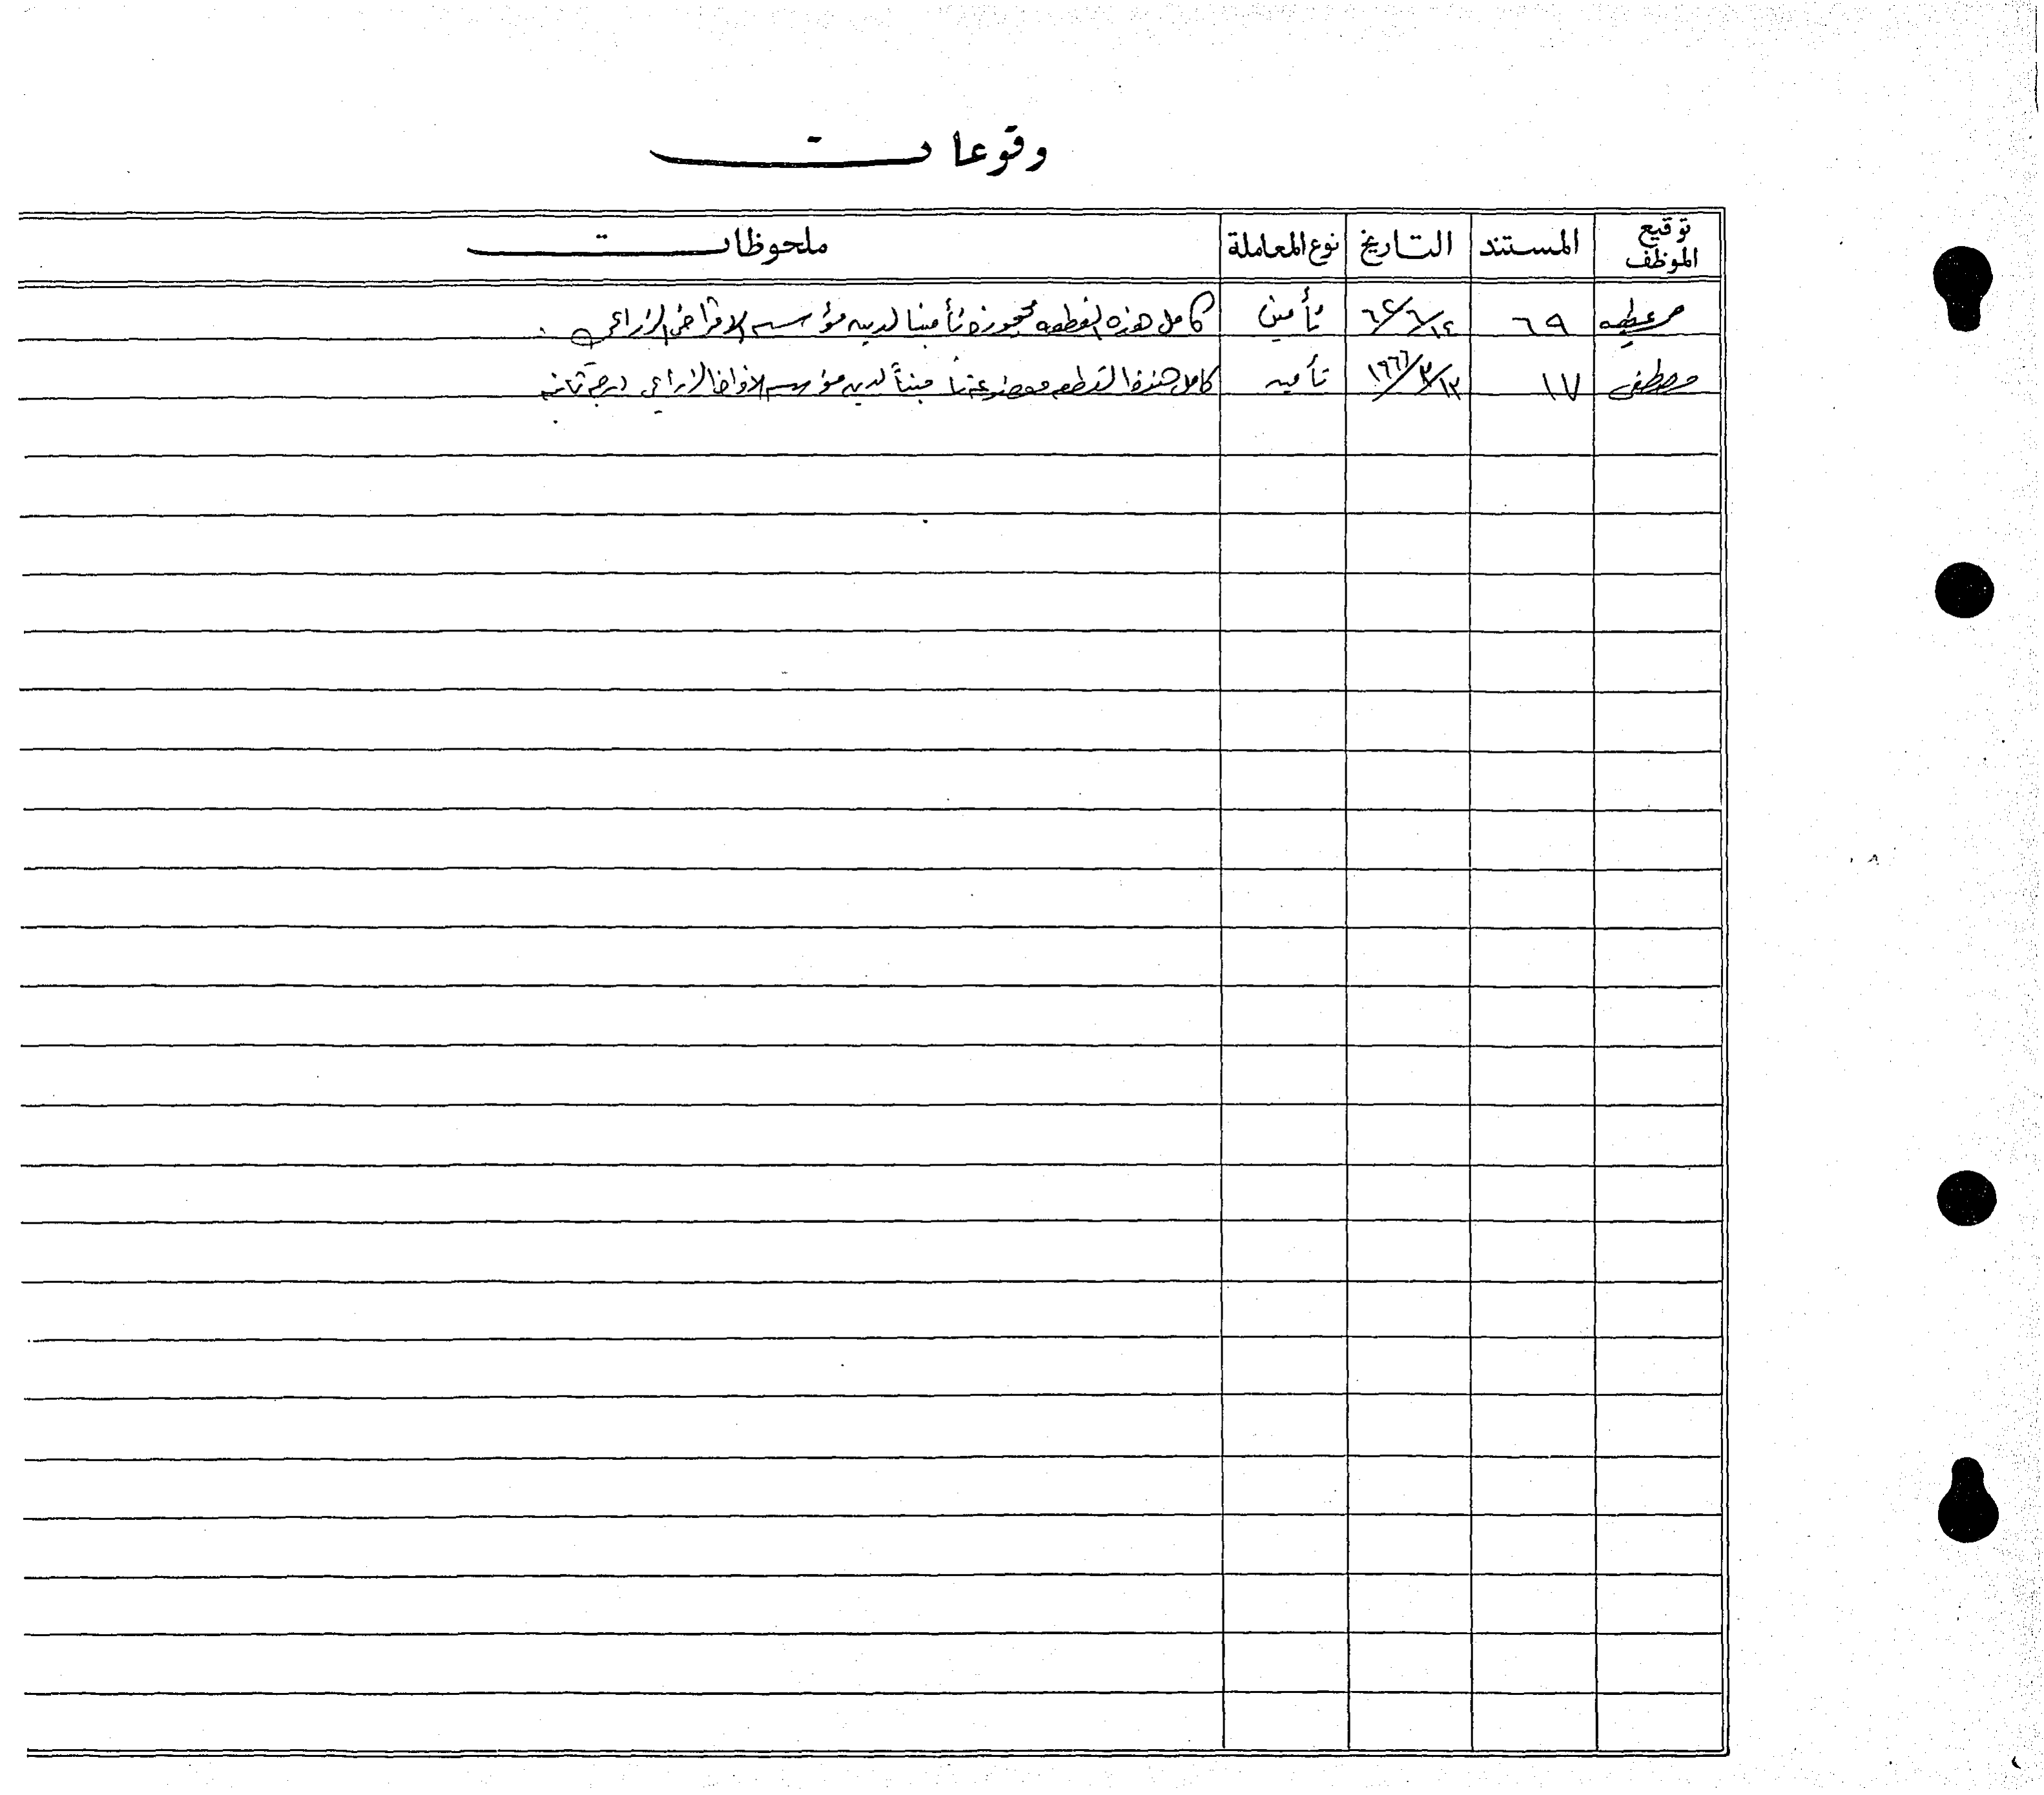 وقوعات
توقيع الموظف المستند التاريخ نوع المعاملة ملحوظات
٦٩ ٦٤/٦/١٤ تأمين كامل هذه القطعه محجوزه تأمينا لدين مؤسسة الاقراض الزراعي
مصطفى ١٧ ١٩٦٦/٣/١٣ تأمين كامل هذه القطعه موضوعة تأميناً لدين مؤسسة الاقراض الزراعي درجة ثانيه